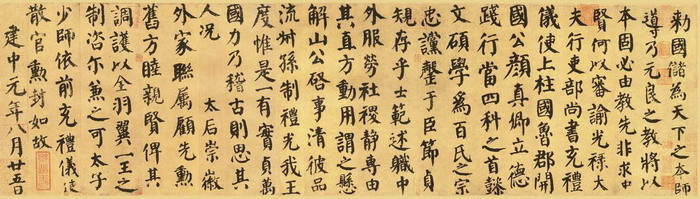 勅國儲為天下之本師
導乃元良之教將以
本固必由教先非求忠
賢何以審諭光祿大
夫行吏部尚書充禮
儀使上柱國魯郡開
國公顏真卿立德
踐行當四科之首懿
文碩學為百氏之宗
忠讜罄于臣節貞
規存乎士範述職中
外服勞社稷靜專由
其直方動用謂之懸
解山公啓事清彼品
流叔孫制禮光我王
度惟是一有實貞萬
國力乃稽古則思其
人況 太后崇徽
外家聯属顧先勳
舊方睦親賢俾其
調護以全羽翼一王之
制咨尔兼之可太子
少師依前充禮儀使
散官勳封如故
建中元年八月廿五日